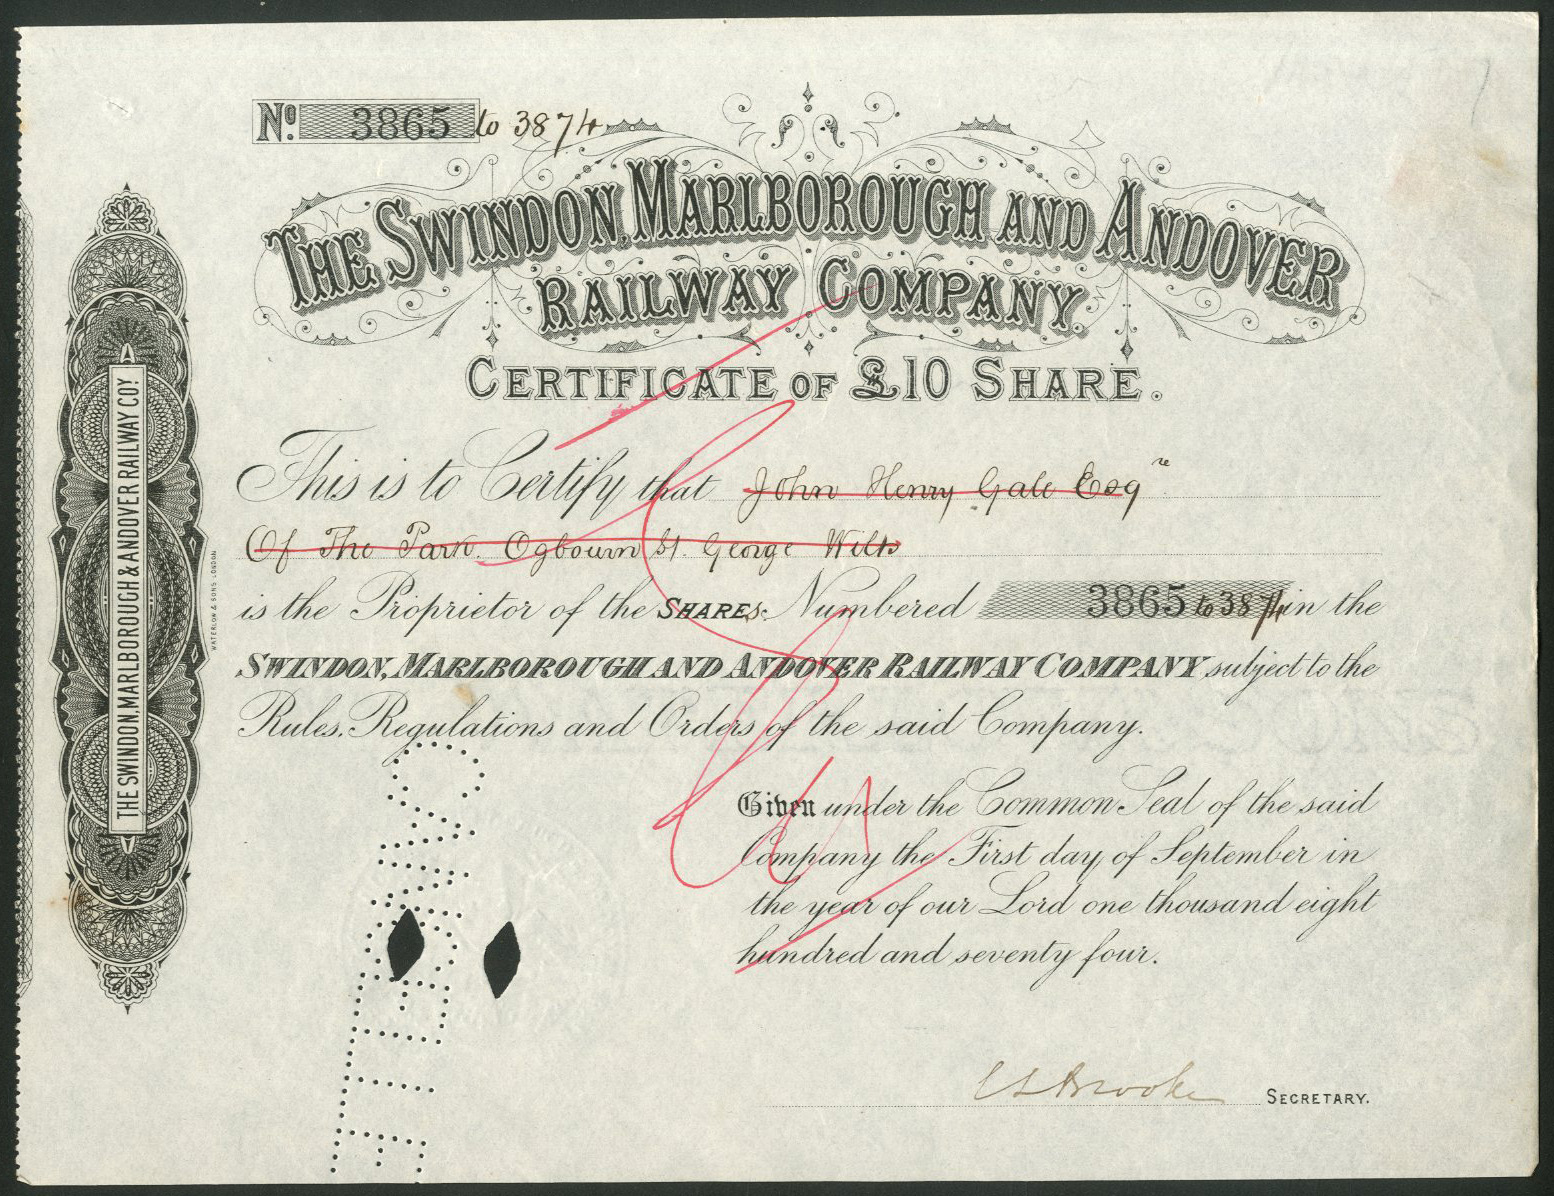 No. 3865 to 3874
THE SWINDON, MARLBOROUGH AND ANDOVER
RAILWAY COMPANY.
CERTIFICATE OF £10 SHARE.
This is to Certify that John Henry Gale Esqre
Of The Park. Ogbourn St. George Wilts
is the Proprietor of the SHAREs. Numbered 3865 to 3874 in the
SWINDON, MARLBOROUGH AND ANDOVER RAILWAY COMPANY subject to the
Rules, Regulations and Orders of the said Company.
Given under the Common Seal of the said
Company the First day of September in
the year of our Lord one thousand eight
hundred and seventy four.
SECRETARY.
THE SWINDON, MARLBOROUGH & ANDOVER RAILWAY COY.
WATERLOW & SONS LONDON